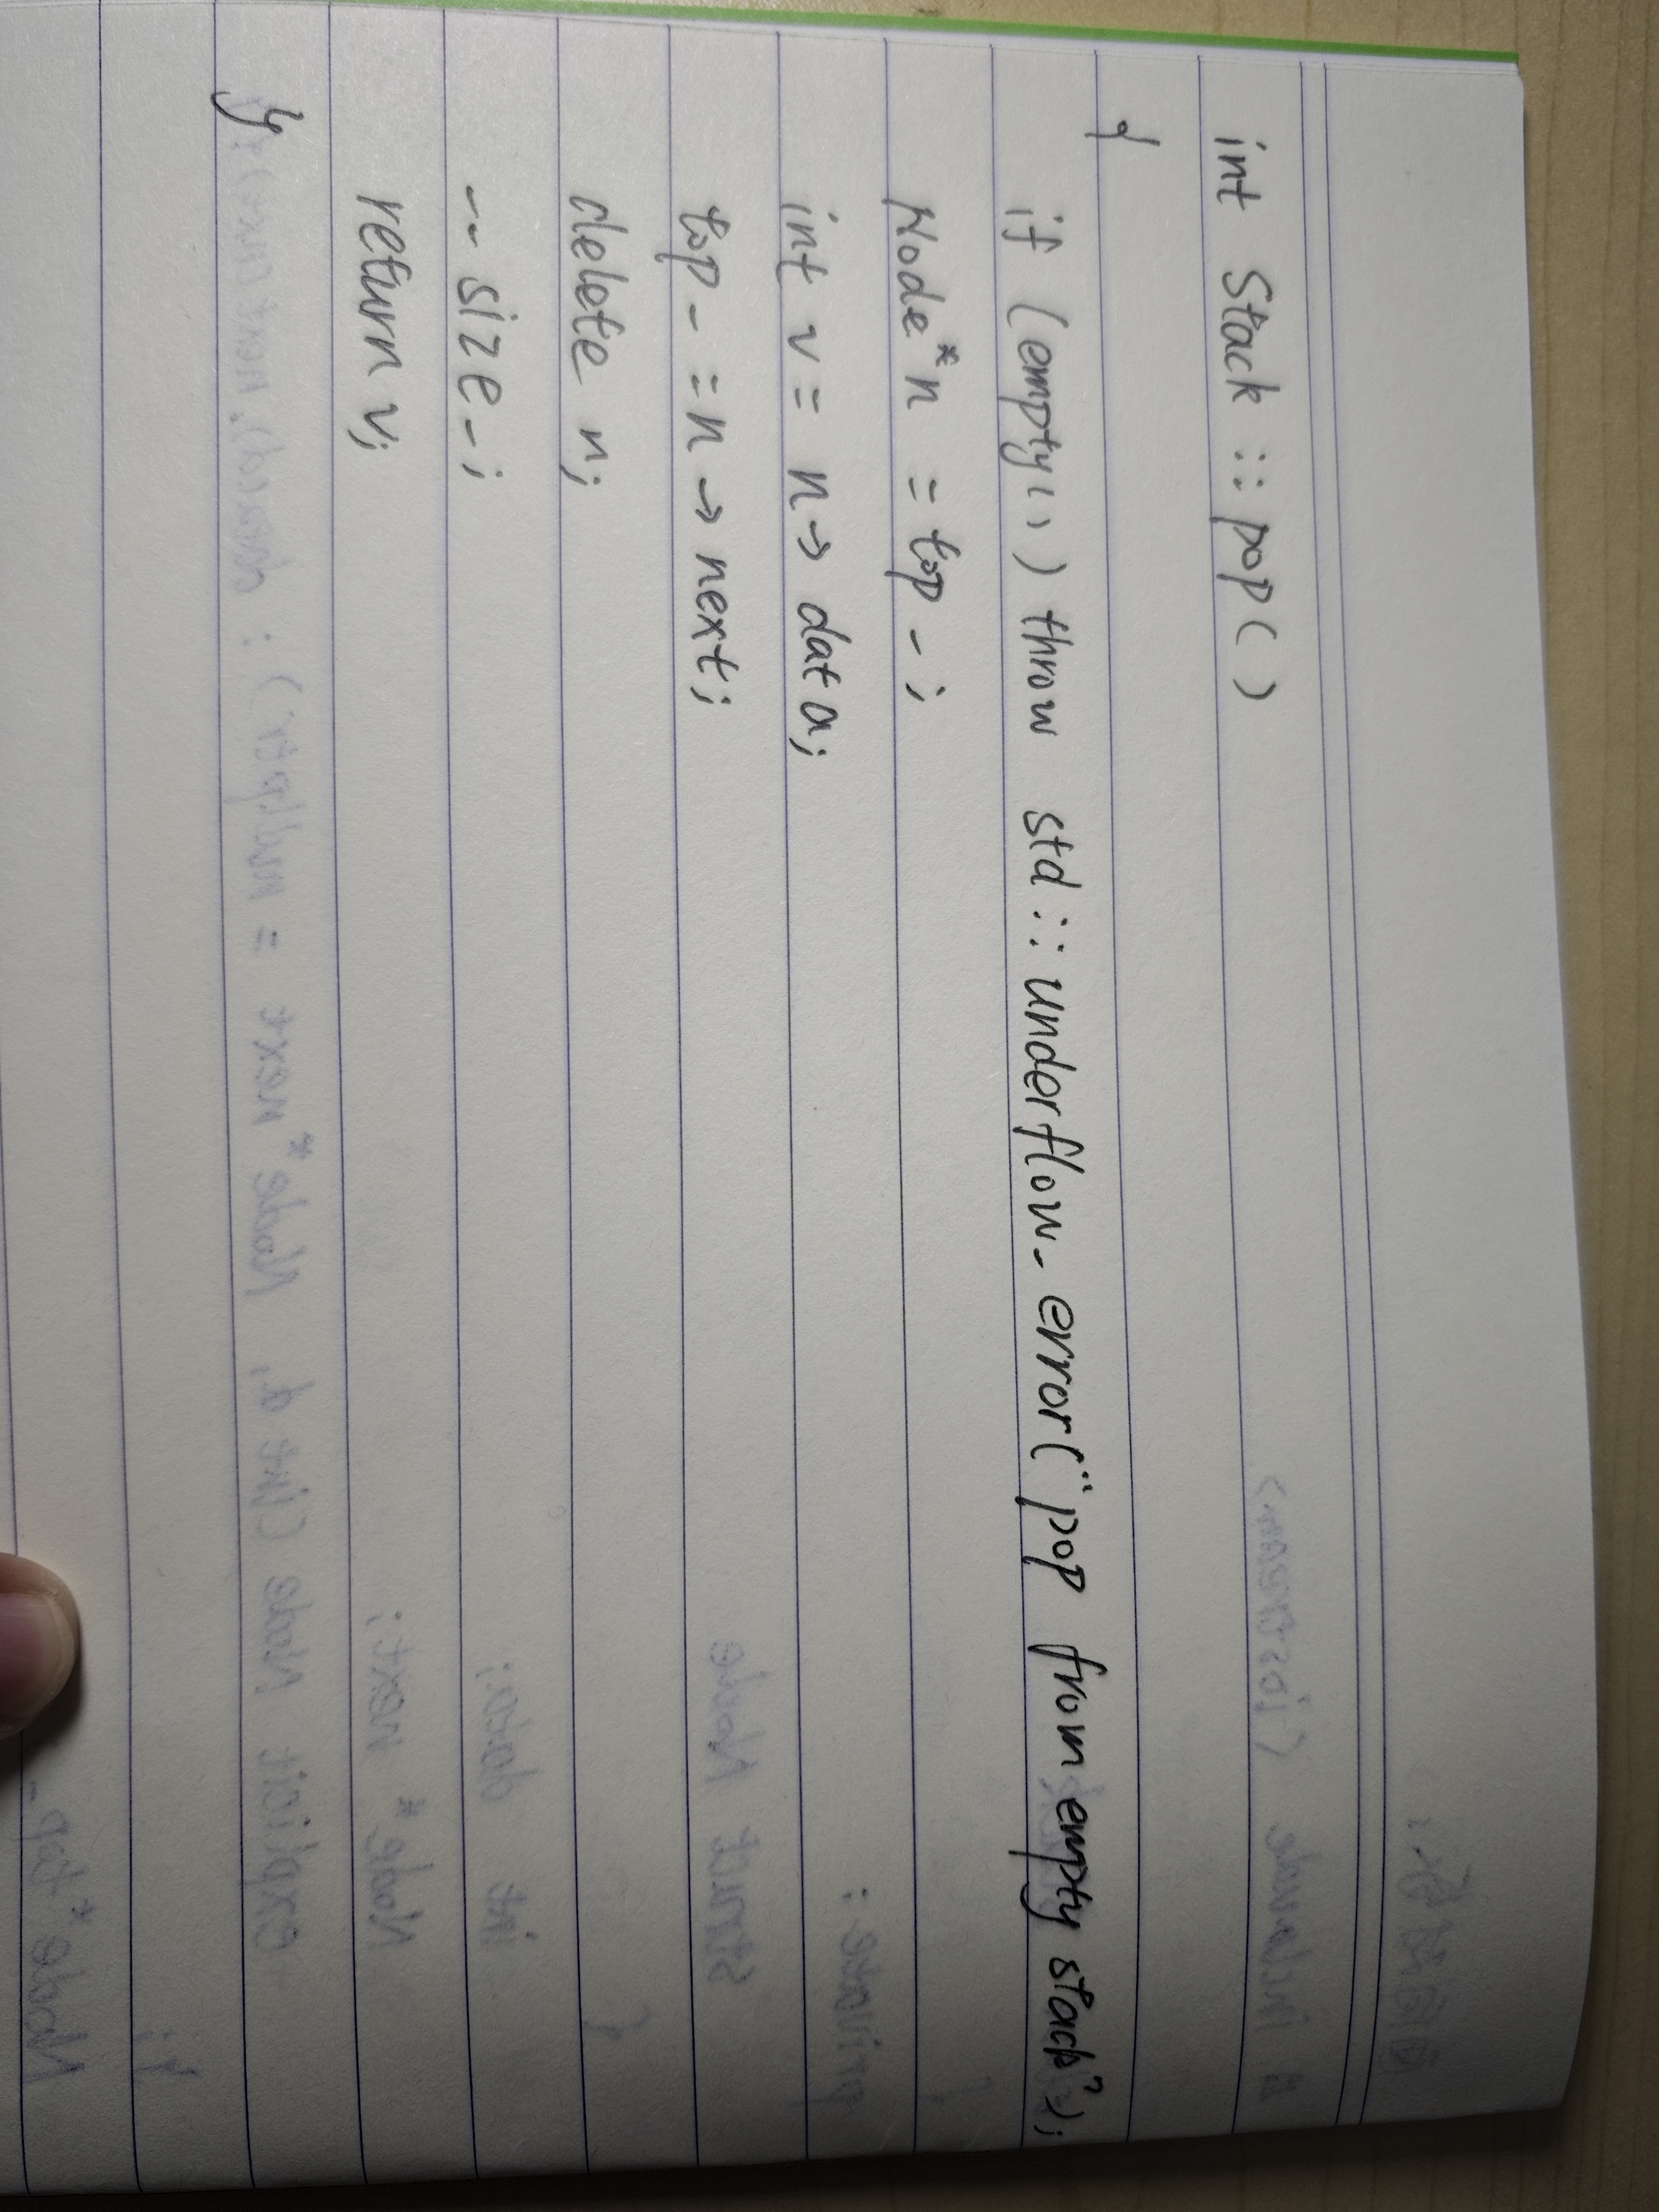 int Stack :: pop()
{
if (empty()) throw std :: underflow_error("pop from empty stack");
Node*n = top_;
int v = n-> data;
top_ = n -> next;
delete n;
-- size_;
return v;
}